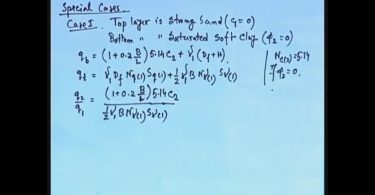 Special Cases.
Case I. Top layer is strong Sand (C₁ = 0)
Bottom " " Saturated Soft Clay (φ₂ = 0)
q_b = (1+0.2 B/L) 5.14 C₂ + γ₁ (D_f + H)
q_t = γ₁ D_f N_q(1) S_q(1) + ½ γ₁ B N_γ(1) S_γ(1)
q₂/q₁ = (1+0.2 B/L) 5.14 C₂ / ½ γ₁ B N_γ(1) S_γ(1)
N_c(2) = 5.14
If φ₂ = 0.